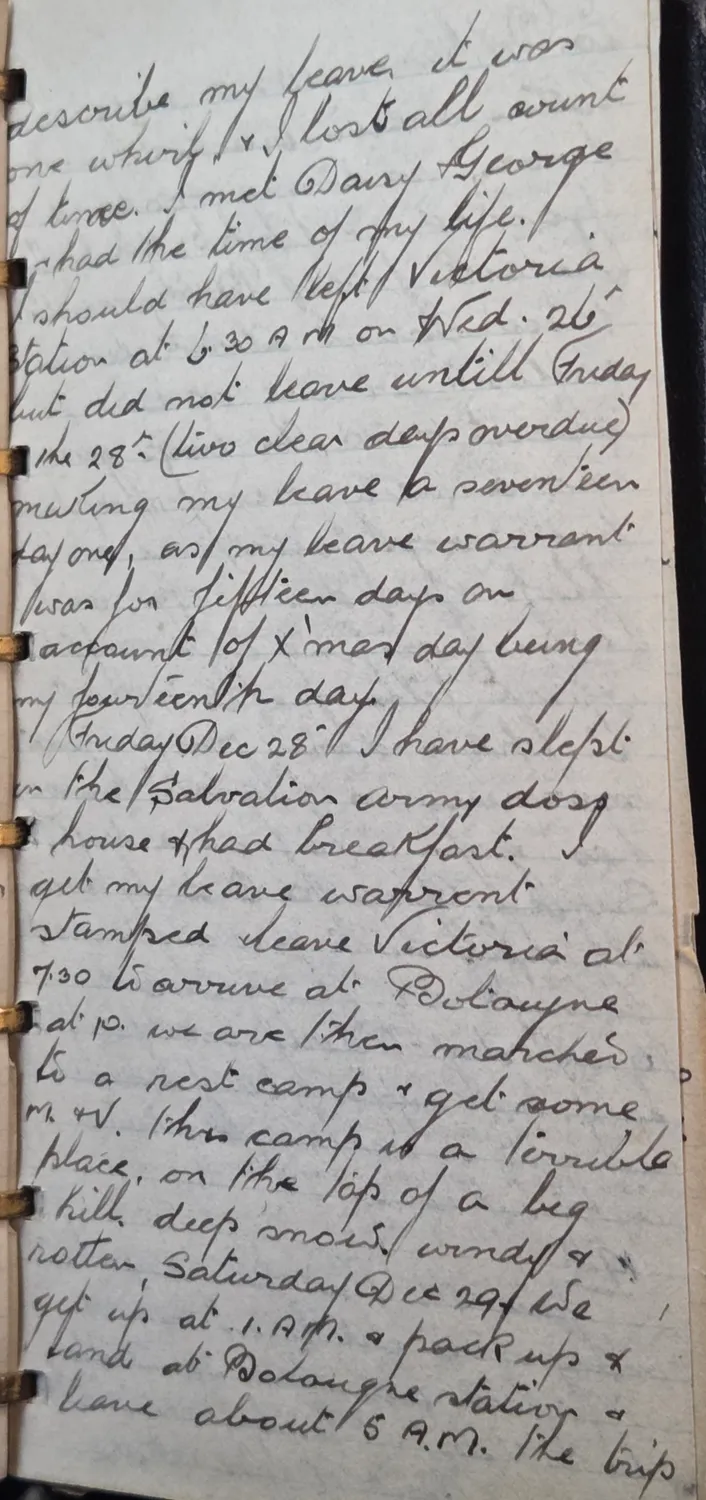 describe my leave, it was
one whirl, & I lost all count
of time. I met Daisy & George
& had the time of my life.
I should have left Victoria
station at 6.30 A M on Wed. 26th
but did not leave untill Friday
the 28th (two clear days overdue)
making my leave a seventeen
day one, as my leave warrant
was for fifteen days on
account of X'mas day being
my fourteenth day.
Friday Dec 28th I have slept
in the Salvation army doss
house & had breakfast. I
get my leave warrent
stamped leave Victoria at
7.30 to arrive at Bolougne
at 12. we are then marched
to a rest camp & get some
M. & V. this camp is a terrible
place, on the top of a big
hill, deep snow, windy &
rotten, Saturday Dec 29, We
get up at 1. A.M. & pack up &
land at Bolougne station &
leave about 5 A.M. the trip